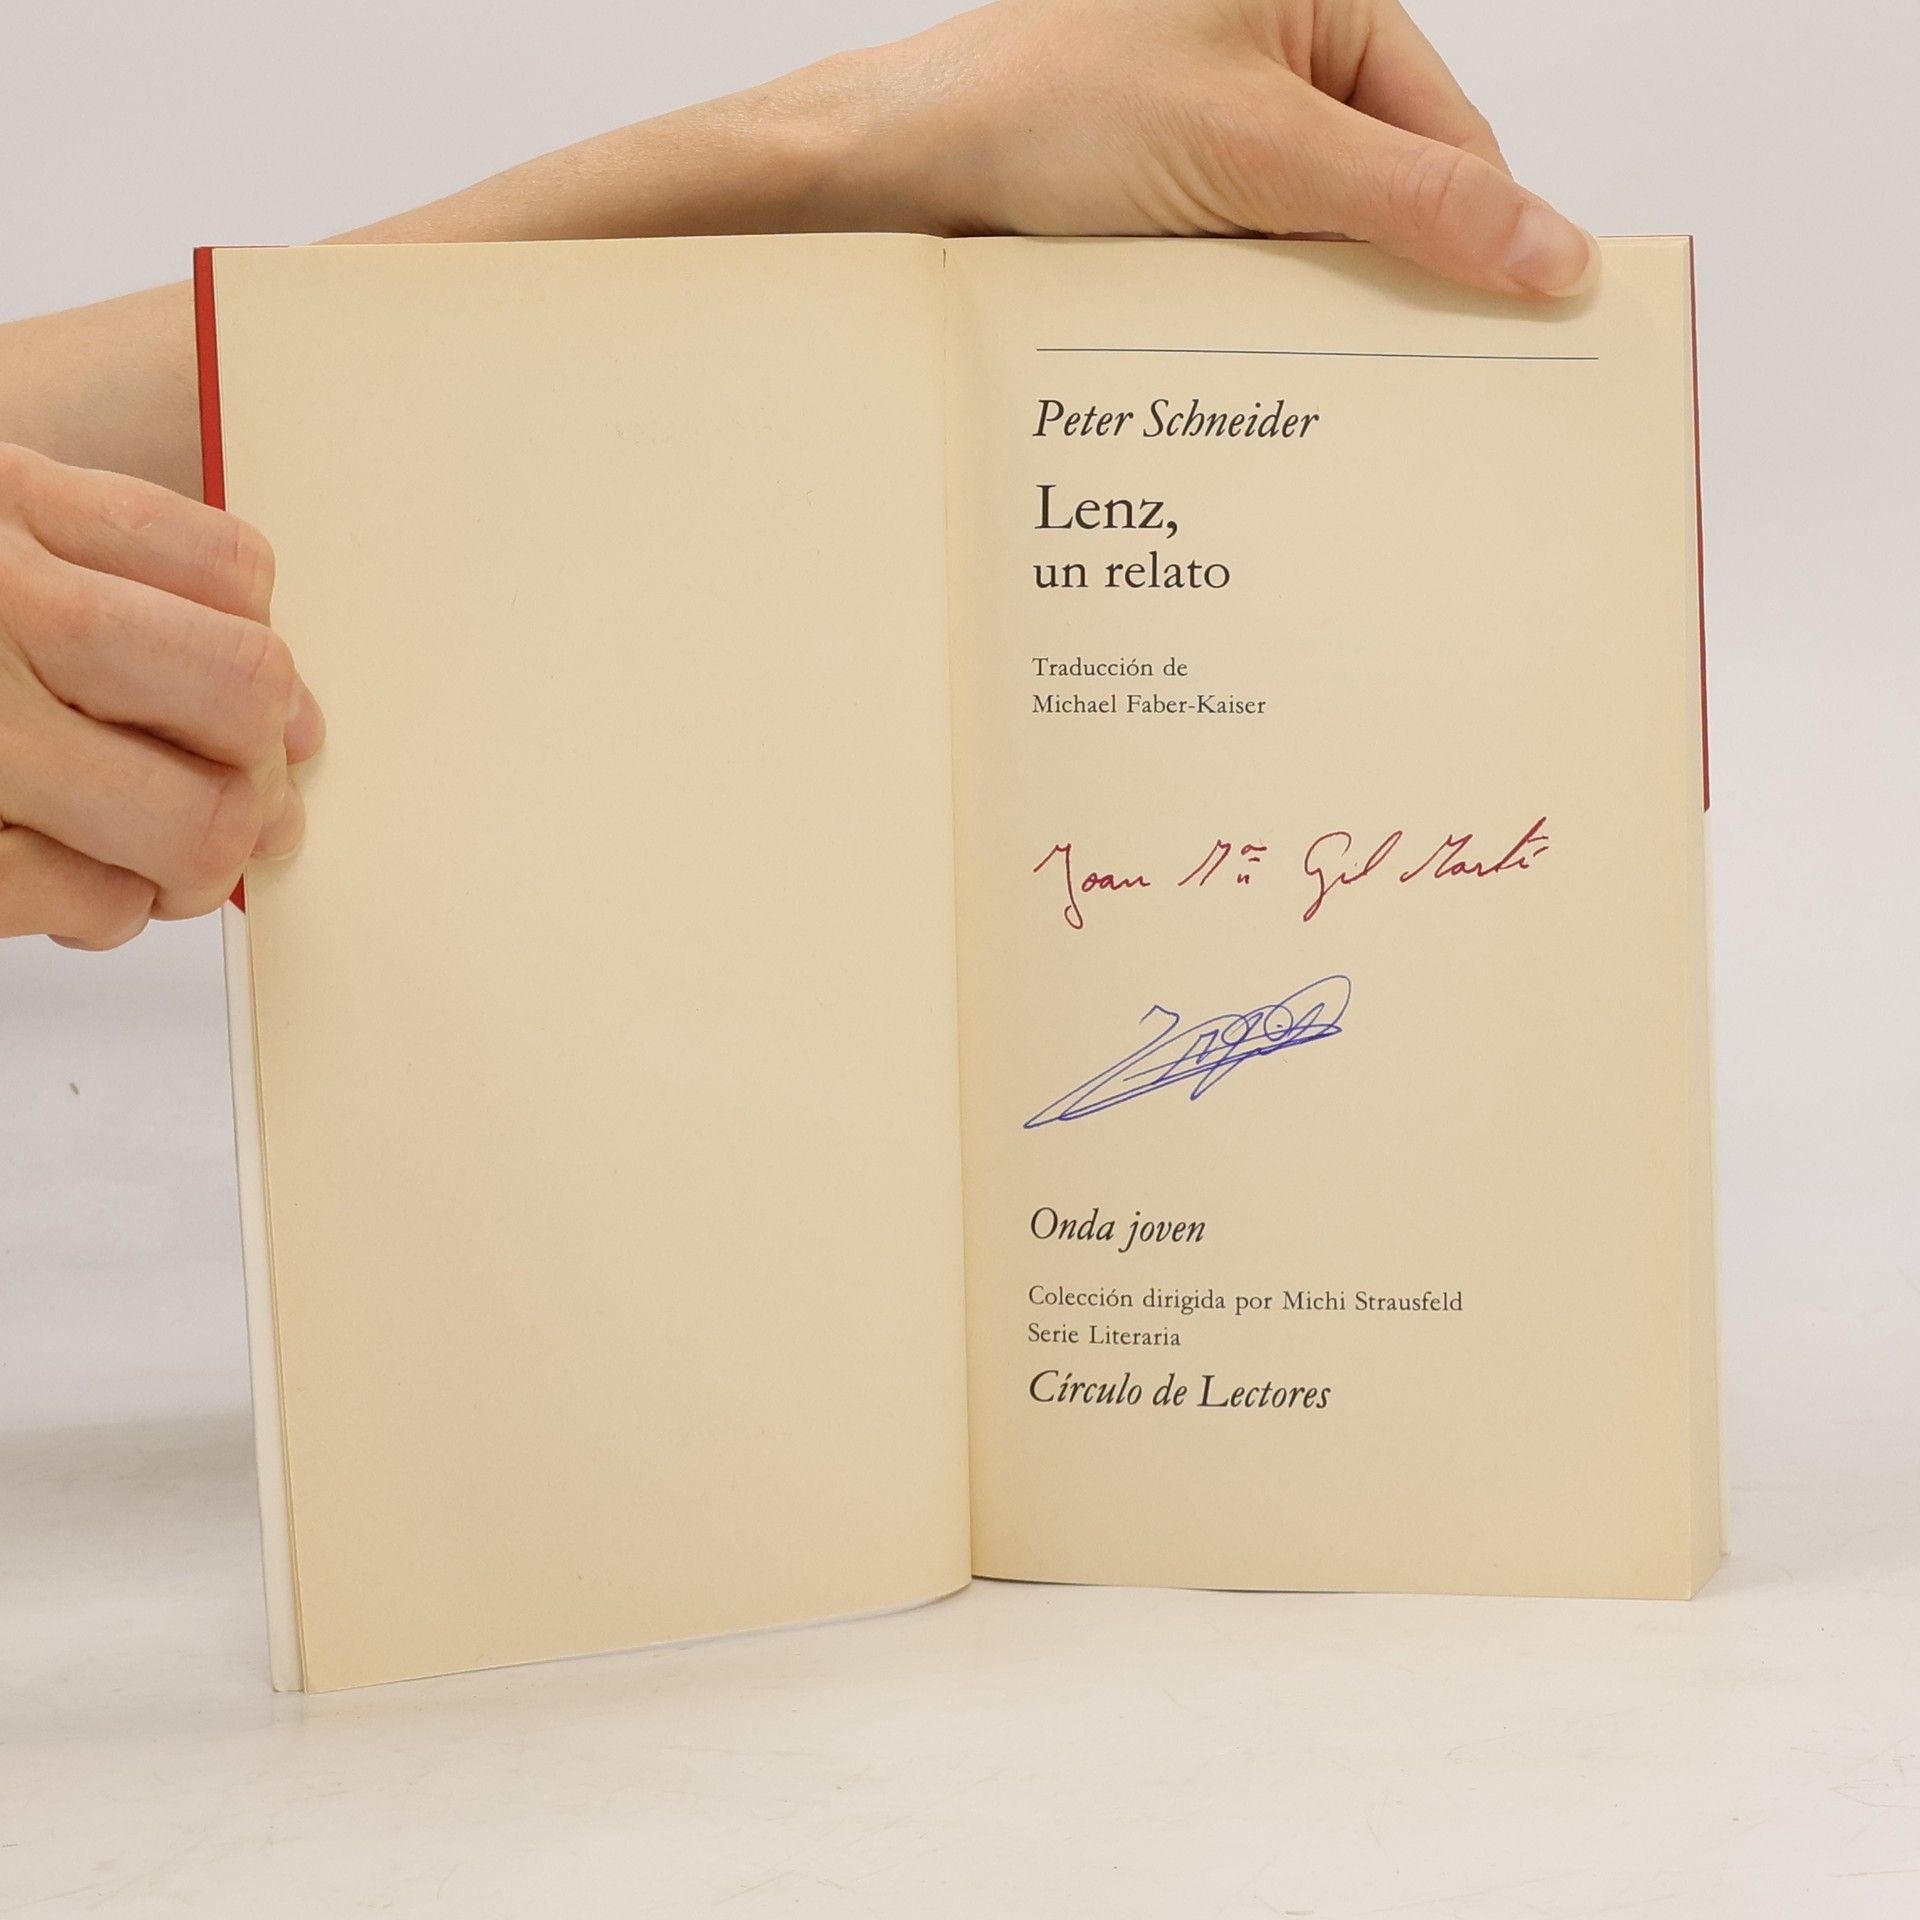 Peter Schneider
Lenz,
un relato
Traducción de
Michael Faber-Kaiser
Joan Mª Gil Martí
Onda joven
Colección dirigida por Michi Strausfeld
Serie Literaria
Círculo de Lectores